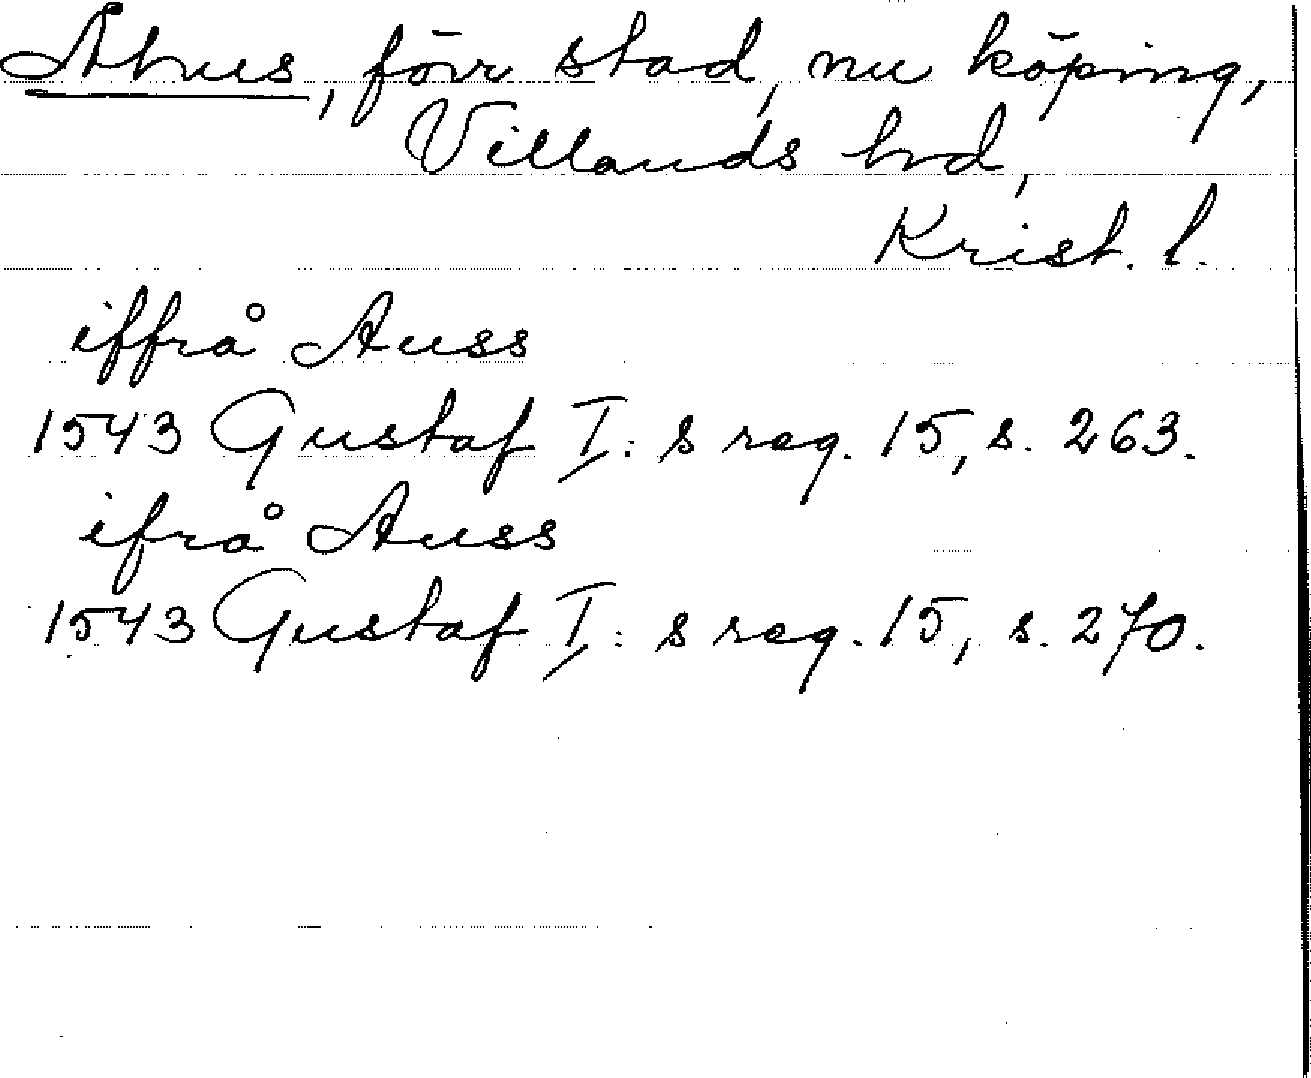 Åhus, förr stad, nu köping,
Villands hrd,
Krist. l.
iffrå Auss
1543 Gustaf I:s reg. 15, s. 263.
ifrå Auss
1543 Gustaf I:s reg. 15, s. 270.